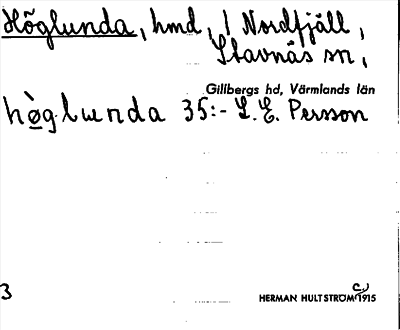 Höglunda, hmd, / Nordfjäll,
Stavnäs sn,
Gillbergs hd, Värmlands län
hø̀glɯnda 35:- L. E. Persson
3
HERMAN HULTSTRÖM C.) 1915